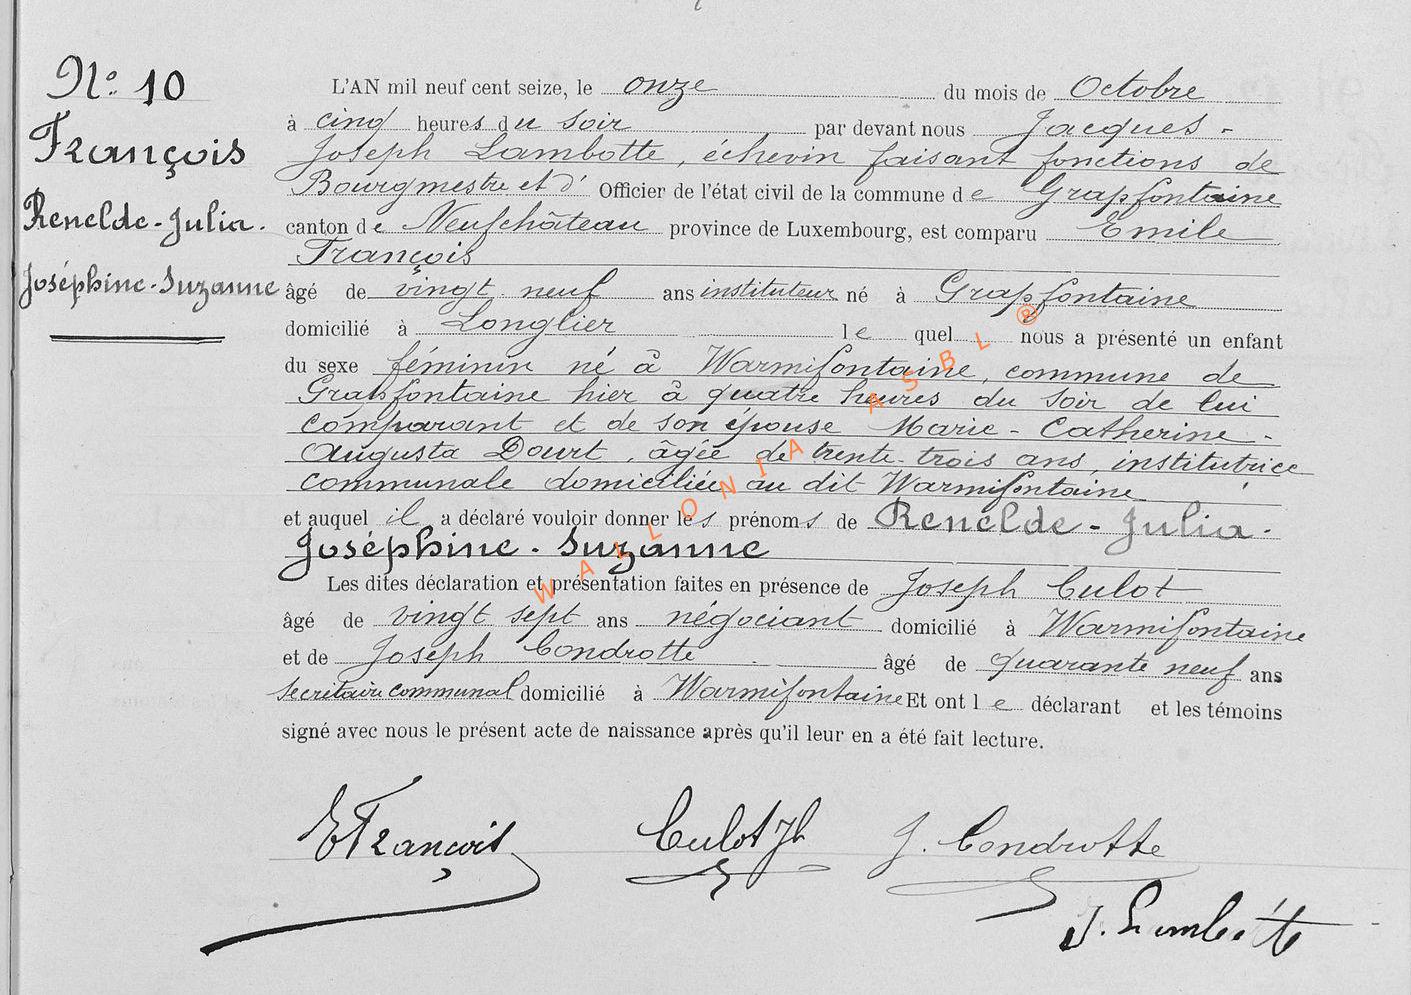 N° 10
François
Renelde-Julia.
Joséphine-Suzanne
L'AN mil neuf cent seize, le onze du mois de Octobre
à cinq heures du soir par devant nous Jacques-
Joseph Lambotte, échevin faisant fonctions de
Bourgmestre et d' Officier de l'état civil de la commune de Grapfontaine
canton de Neufchâteau province de Luxembourg, est comparu Emile
François
âgé de vingt neuf ans instituteur né à Grapfontaine
domicilié à Longlier lequel nous a présenté un enfant
du sexe féminin né à Warmifontaine, commune de
Grapfontaine hier à quatre heures du soir de lui
comparant et de son épouse Marie-Catherine-
Augusta Dourt, âgée de trente-trois ans, institutrice
communale domiciliée au dit Warmifontaine
et auquel il a déclaré vouloir donner les prénoms de Renelde-Julia-
Joséphine-Suzanne
Les dites déclaration et présentation faites en présence de Joseph Culot
âgé de vingt sept ans négociant domicilié à Warmifontaine
et de Joseph Condrotte âgé de quarante neuf ans
secrétaire communal domicilié à Warmifontaine Et ont le déclarant et les témoins
signé avec nous le présent acte de naissance après qu'il leur en a été fait lecture.
EFrançois Culot Jh J. Condrotte
J. Lambotte
WALLONIA ASBL ®